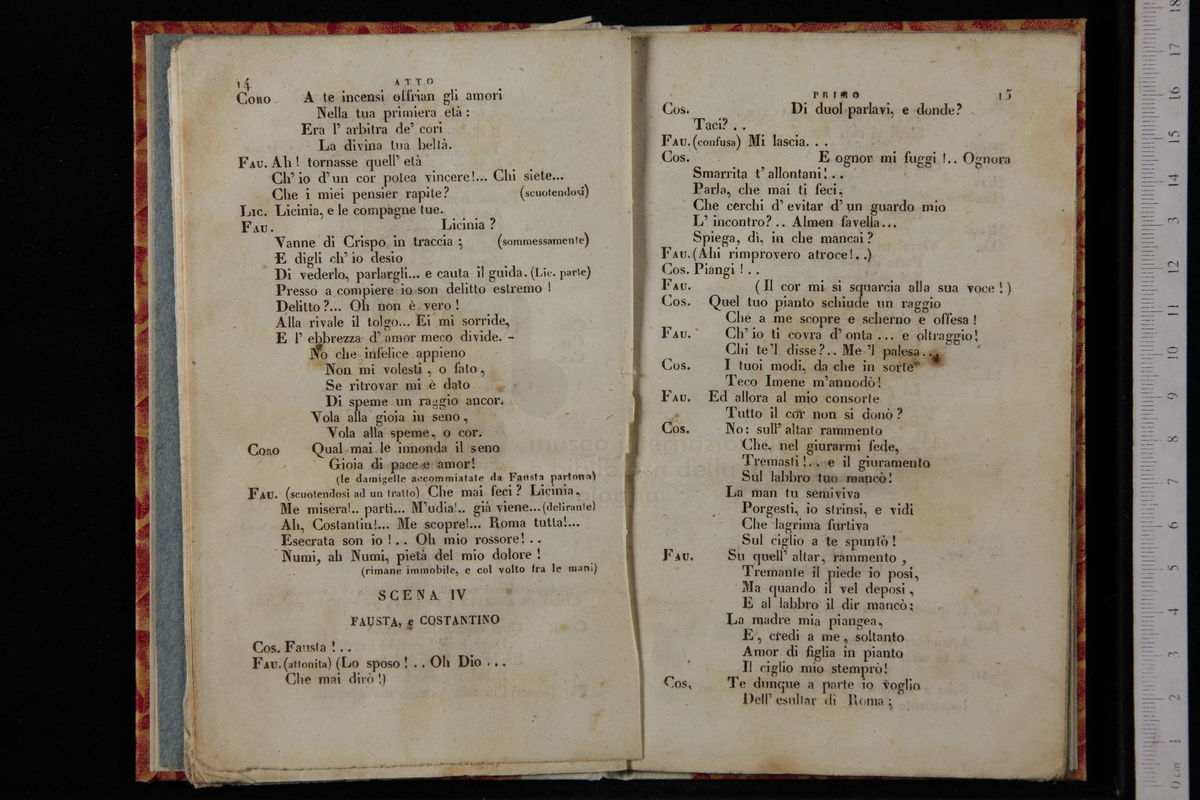 14
ATTO
CORO A te incensi offrian gli amori
Nella tua primiera età :
Era l' arbitra de' cori
La divina tua beltà.
FAU. Ah ! tornasse quell' età
Ch' io d'un cor potea vincere!... Chi siete...
Che i miei pensier rapite? (scuotendosi)
LIC. Licinia, e le compagne tue.
FAU. Licinia ?
Vanne di Crispo in traccia ; (sommessamente)
E digli ch' io desio
Di vederlo, parlargli... e cauta il guida. (LIC. parte)
Presso a compiere io son delitto estremo !
Delitto ?... Oh non è vero !
Alla rivale il tolgo... Ei mi sorride,
E l' ebbrezza d' amor meco divide. -
No che infelice appieno
Non mi volesti , o fato ,
Se ritrovar mi è dato
Di speme un raggio ancor.
Vola alla gioia in seno ,
Vola alla speme, o cor.
CORO Qual mai le innonda il seno
Gioia di pace e amor!
(le damigelle accommiatate da Fausta partono)
FAU. (scuotendosi ad un tratto) Che mai feci ? Licinia,
Me misera!.. partì... M'udia!.. già viene...(delirante)
Ah, Costantin!... Me scopre!... Roma tutta!...
Esecrata son io ! . . Oh mio rossore! . .
Numi, ah Numi, pietà del mio dolore !
(rimane immobile, e col volto fra le mani)
SCENA IV
FAUSTA, e COSTANTINO
COS. Fausta ! . .
FAU. (attonita) (Lo sposo ! . . Oh Dio . . .
Che mai dirò !)
PRIMO
15
COS. Di duol parlavi, e donde?
Taci? . .
FAU. (confusa) Mi lascia. . .
COS. E ognor mi fuggi !.. Ognora
Smarrita t' allontani! . .
Parla, che mai ti feci,
Che cerchi d' evitar d' un guardo mio
L' incontro? .. Almen favella...
Spiega, dì, in che mancai ?
FAU. (Ahi rimprovero atroce!. .)
COS. Piangi ! . .
FAU. (Il cor mi si squarcia alla sua voce !)
COS. Quel tuo pianto schiude un raggio
Che a me scopre e scherno e offesa !
FAU. Ch' io ti covra d' onta ... e oltraggio!
Chi te'l disse?.. Me 'l palesa...
COS. I tuoi modi, da che in sorte
Teco Imene m'annodò!
FAU. Ed allora al mio consorte
Tutto il cor non si donò ?
COS. No: sull' altar rammento
Che, nel giurarmi fede,
Tremasti !. . e il giuramento
Sul labbro tuo mancò!
La man tu semiviva
Porgesti, io strinsi, e vidi
Che lagrima furtiva
Sul ciglio a te spuntò !
FAU. Su quell' altar, rammento ,
Tremante il piede io posi,
Ma quando il vel deposi ,
E al labbro il dir mancò:
La madre mia piangea,
E, credi a me, soltanto
Amor di figlia in pianto
Il ciglio mio stemprò!
COS. Te dunque a parte io voglio
Dell' esultar di Roma ;